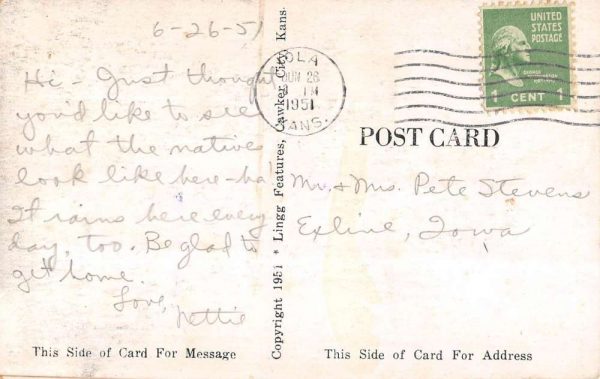 6-26-51
Hi - Just thought
you'd like to see
what the natives
look like here - ha
It rains here every
day, too. Be glad to
get home.
Love,
Nettie
This Side of Card For Message
Copyright 1951 * Lingg Features, Cawker City, Kans.
OLA
JUN 26
PM
1951
KANS.
UNITED
STATES
POSTAGE
GEORGE
WASHINGTON
1 CENT 1
POST CARD
Mr. & Mrs. Pete Stevens
Exline, Iowa
This Side of Card For Address